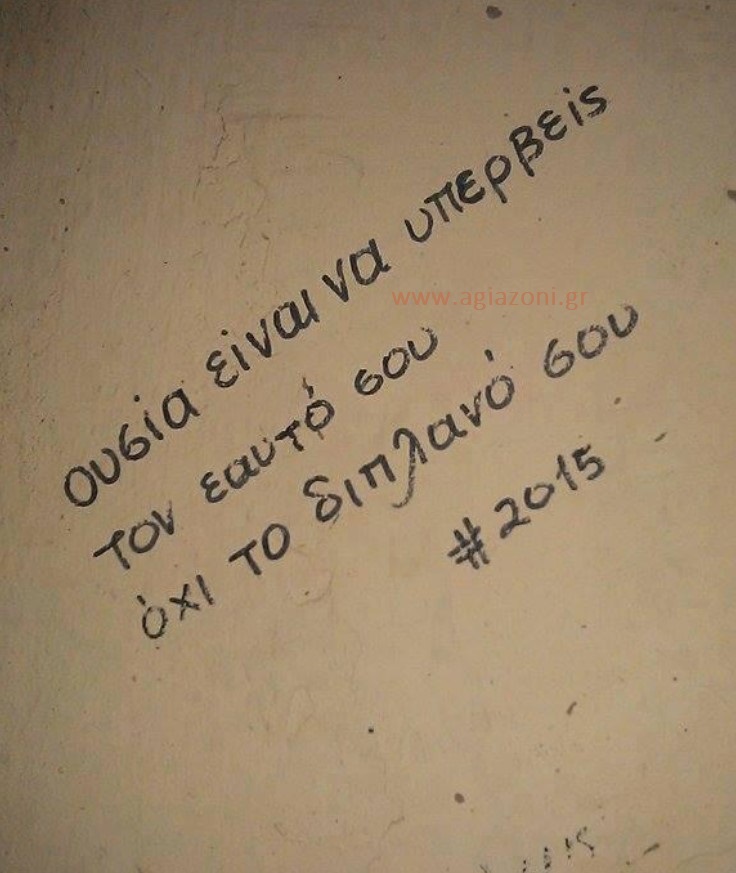 ουσία είναι να υπερβείς
www.agiazoni.gr
τον εαυτό σου
όχι το διπλανό σου
#2015